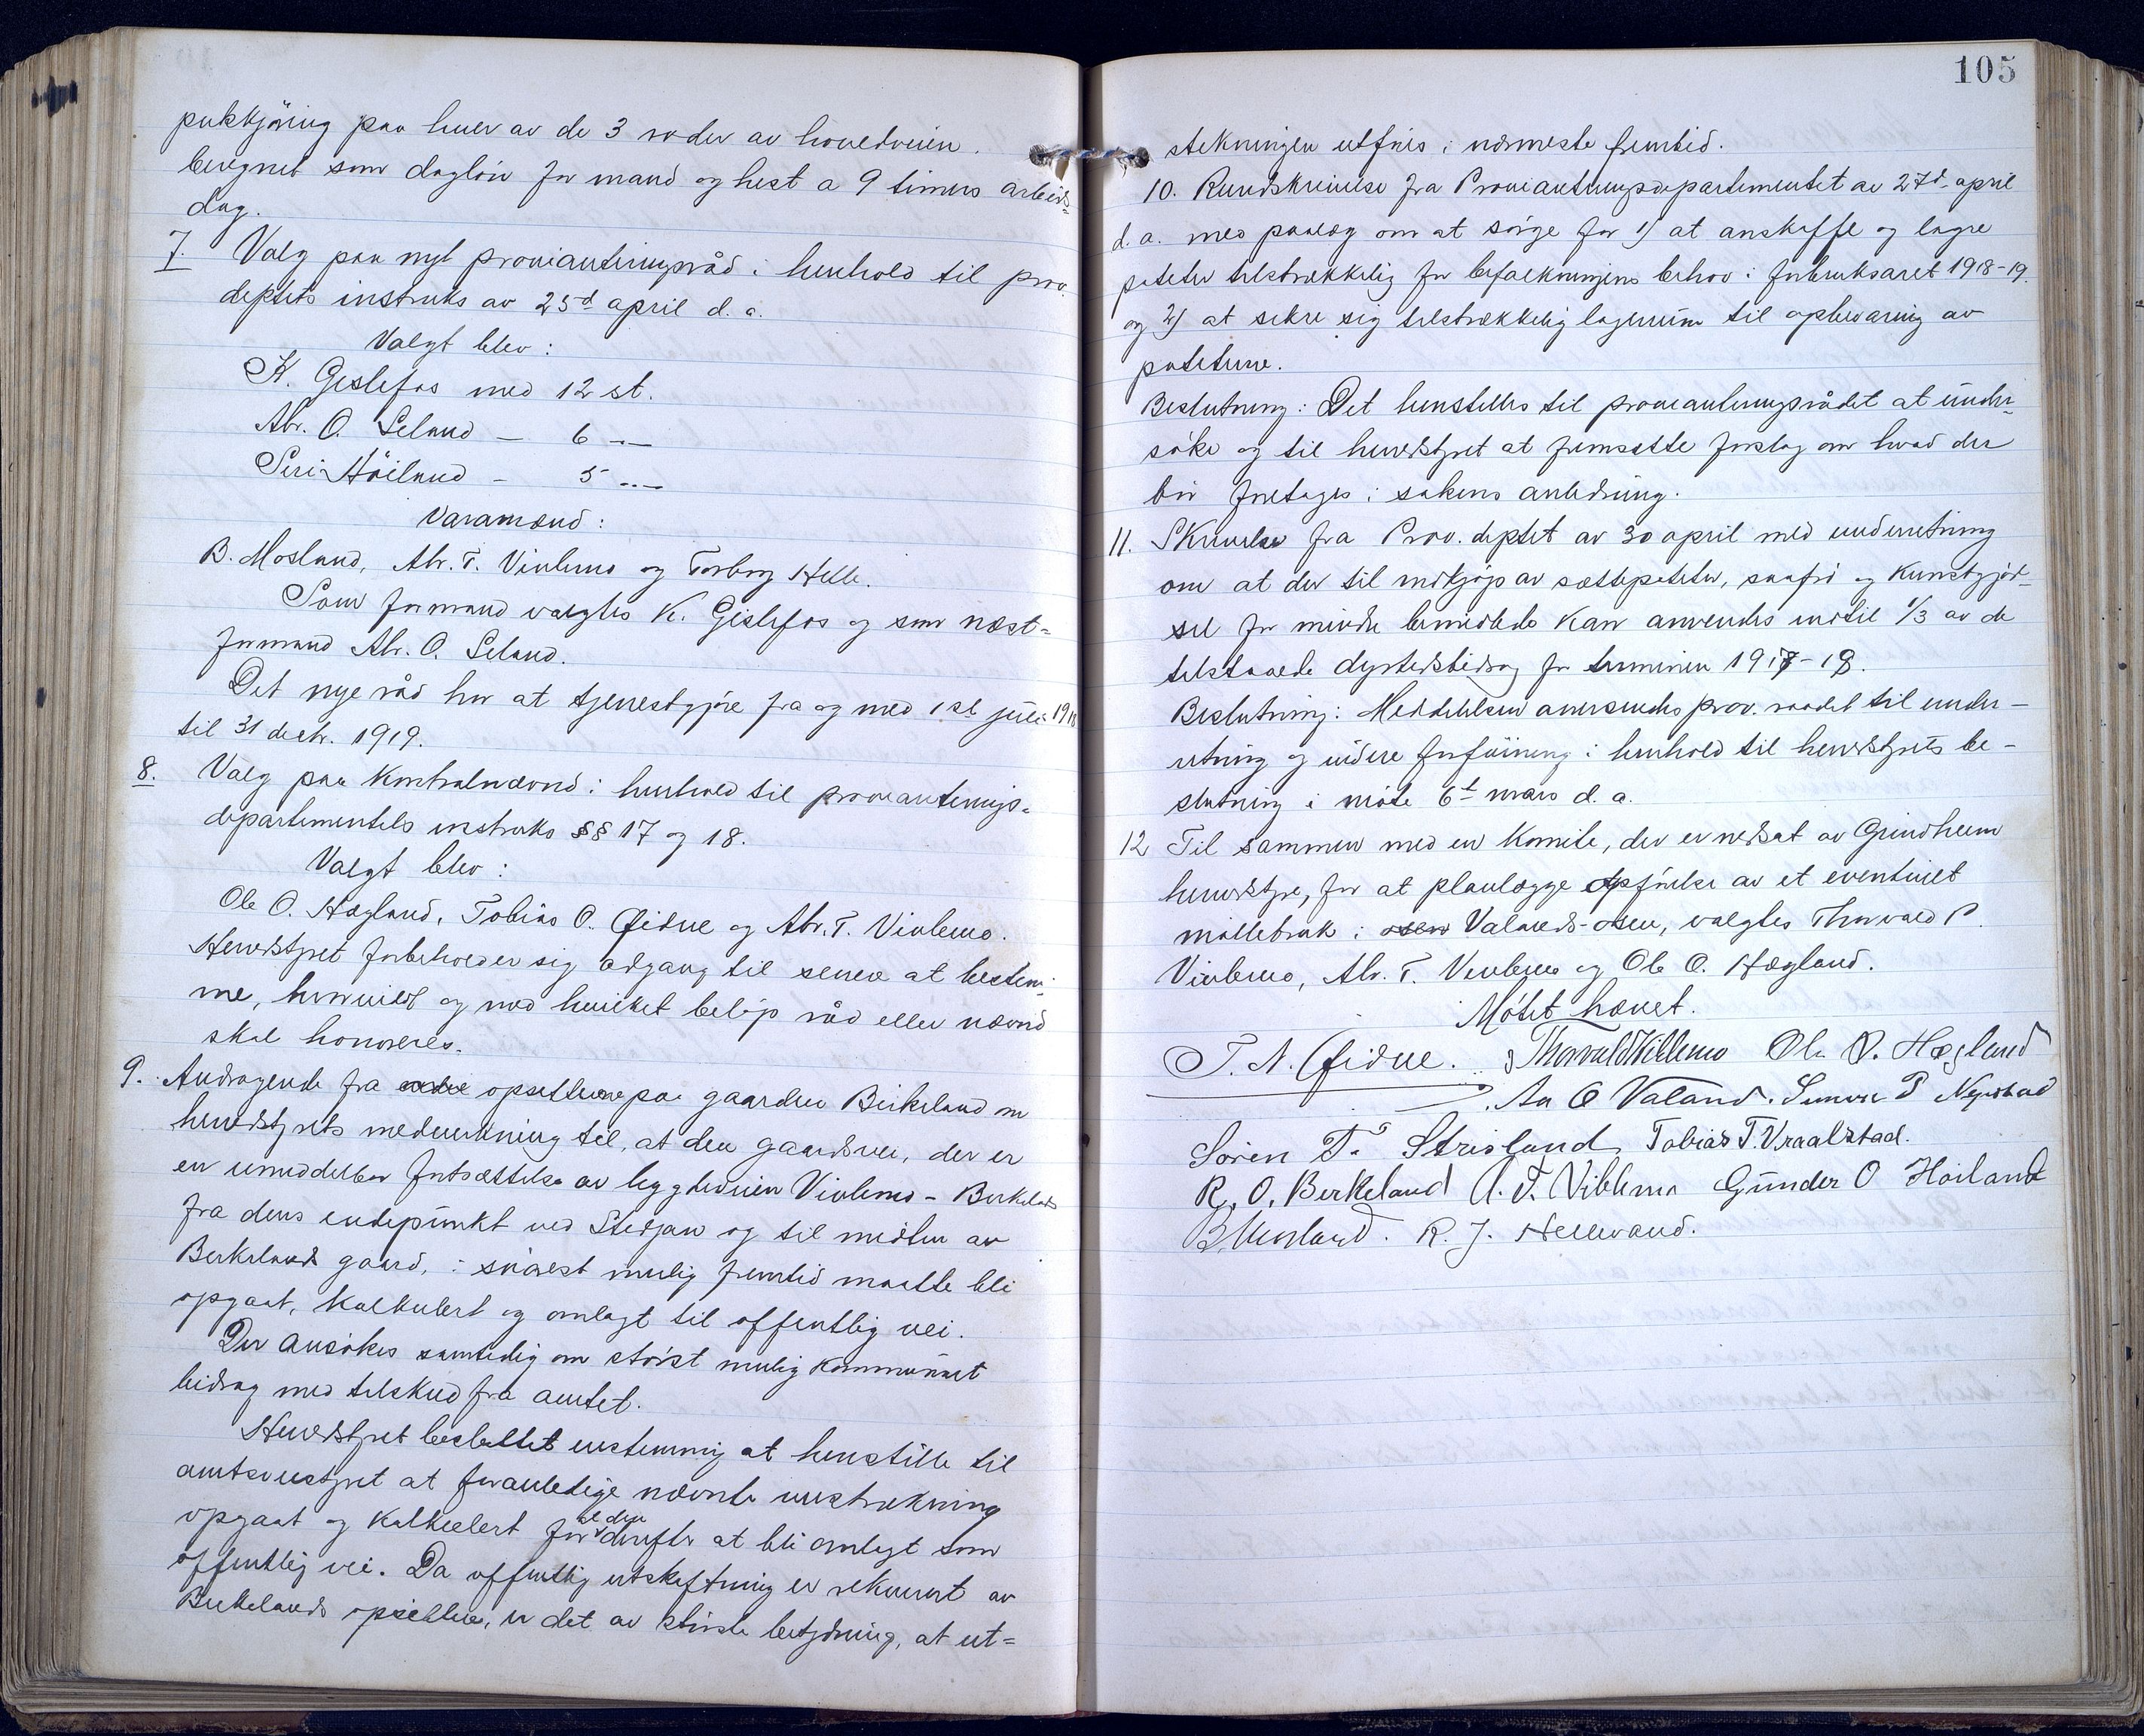 pukkjøring paa hver av de 3 roder av hovedveien.
beregnet som dagløn for mand og hest a 9 timers arbeids-
dag.
7. Valg paa nyt provianteringsråd i henhold til prov.
deptets instruks av 25d april d. a.
Valgt blev:
K. Gislefos med 12 st.
Abr. O. Seland — 6 —
Siri Høiland — 5 —
Varamænd:
B. Mosland, Abr. T. Viblemo og Torborg Helle.
Som formand valgtes K. Gislefos og som næst=
formand Abr. O. Seland.
Det nye råd har at tjenestgjøre fra og med 1st juli 1918
til 31 decbr. 1919.
8. Valg paa Kontrolnævnd i henhold til provianterings=
departementets instruks §§ 17 og 18.
Valgt blev:
Ole O. Hægland, Tobias O. Øidne og Abr. T. Viblemo.
Herredstyret forbeholder sig adgang til senere at bestem-
me, hvorvidt og med hvilket beløp råd eller nævnd
skal honoreres.
9. Andragende fra opsitterne paa gaarden Birkeland om
herredstyrets medvirkning til, at den gaardsvei, der er
en umiddelbar fortsættelse av bygdeveien Viblemo - Birkeland
fra dens endepunkt ved Stedjan og til midten av
Birkeland gaard, i snarest mulig fremtid maatte bli
opgaat, kalkulert og omlagt til offentlig vei.
Der ansøkes samtidig om størst mulig kommunalt
bidrag med tilskud fra amtet.
Herredstyret besluttet enstemmig at henstille til
amtsveistyret at foranledige nævnte veistrækning
opgaat og kalkulert for at den derefter at bli omlagt som
offentlig vei. Da offentlig utskiftning er rekvirert av
Birkelands opsittere, er det av største betydning, at ut=
105
stekningen utføres i nærmeste fremtid.
10. Rundskrivelse fra Provianteringsdepartementet av 27d april
d. a. med paalæg om at sørge for 1) at anskaffe og lagre
poteter tilstrækkelig for befolkningens behov i forbruksaret 1918-19.
og 2) at sikre sig tilstrækkelig lagerrum til opbevaring av
poteterne.
Beslutning: Det henstilles til provianteringsrådet at under-
søke og til herredstyret at fremsætte forslag om hvad der
bør foretages i sakens anledning.
11. Skrivelse fra Prov. deptet av 30 april med underretning
om at der til indkjøp av sættepoteter, saafrø og kunstgjød-
sel for mindre bemidlede kan anvendes indtil 1/3 av de
tilstaaede dyrtidsbidrag for terminen 1917-18.
Beslutning: Meddelelsen oversendes prov. raadet til under-
retning og videre forføining i henhold til herredstyrets be-
slutning i møte 6t mars d. a.
12 Til sammen med en komite, der er nedsat av Grindheim
herredstyre, for at planlægge opførelse av et eventuelt
møllebruk i osen Valands-osen, valgtes Thorvald P.
Viblemo, Abr. T. Viblemo og Ole O. Hægland.
Møtet hævet.
T. N. Øidne. Thorvald Viblemo Ole O. Hægland
Aa O Valand. Simon P Nepstad
Søren T. Strisland Tobias T. Vraalstad.
R. O. Berkeland A. T. Viblemo Gunder O Høiland
B. Mosland. R. J. Hellevand.